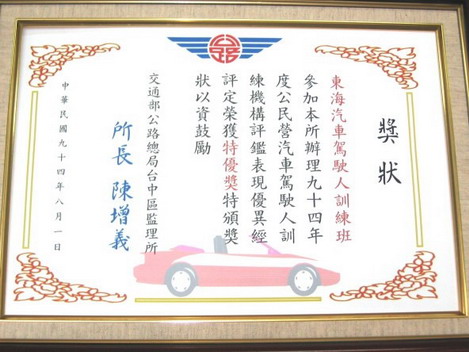 獎狀
東海汽車駕駛人訓練班
參加本所辦理九十四年
度公民營汽車駕駛人訓
練機構評鑑表現優異經
評定榮獲特優獎特頒獎
狀以資鼓勵
交通部公路總局台中區監理所
所長 陳增義
中華民國九十四年八月一日